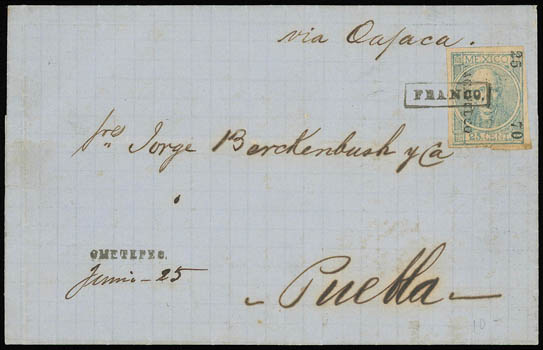 via Oajaca.
25
MEXICO
FRANCO.
70
25 CENT
Sres Jorge Berckenbush y Ca
OMETEPEC.
Junio - 25
Puebla
10